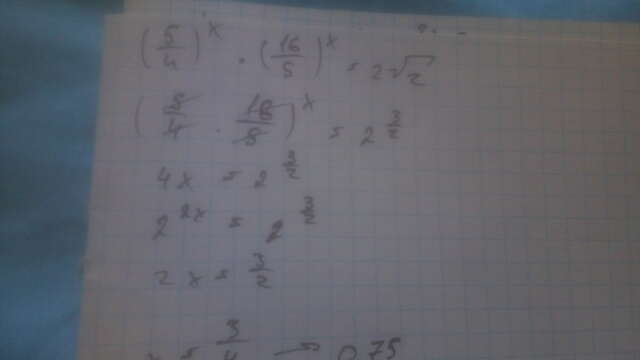 (5/4)^x · (16/5)^x = 2√2
(5/4 · 16/5)^x = 2^(3/2)
4^x = 2^(3/2)
2^(2x) = 2^(3/2)
2x = 3/2
x = 3/4 → 0,75